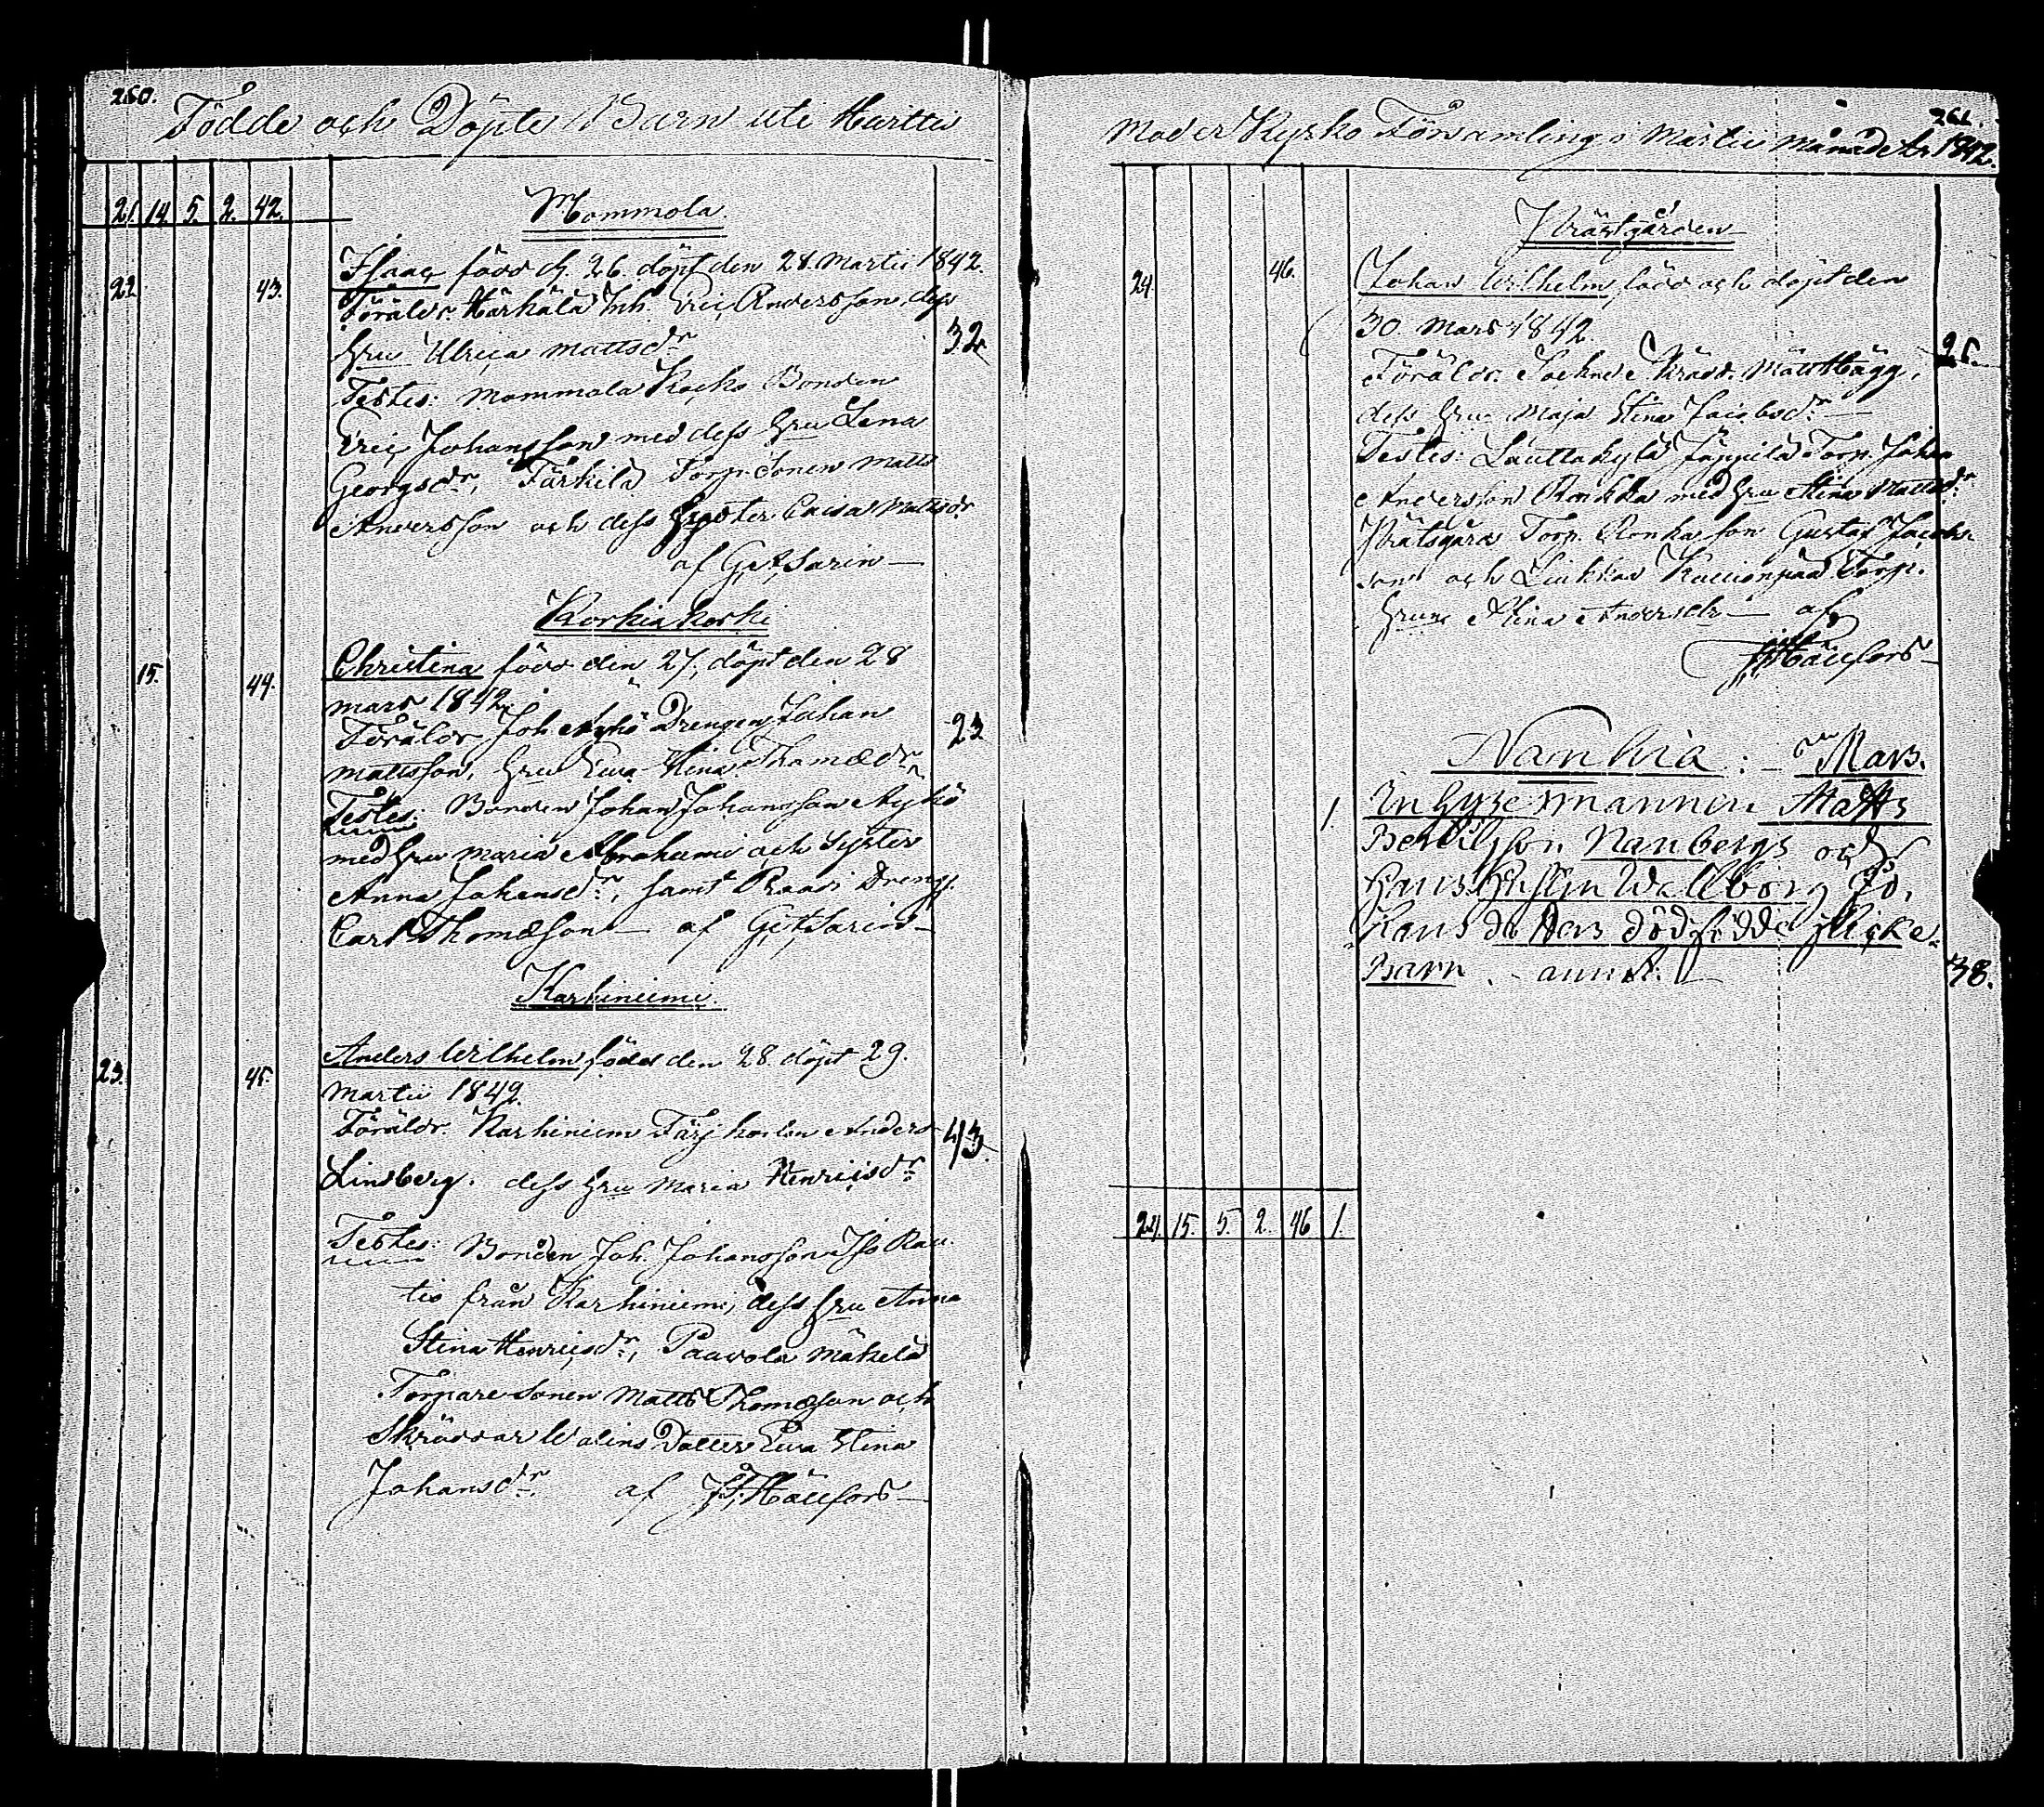 260.
Födde och Döpte Barn uti Huittis
21. 14. 5. 2. 42.
Mommola.
Isaac född d. 26. döpt den 28. Martii 1842.
22. 43.
Föräldr. Härkälä Inh. Eric Andersson, dess
hru Ulrica Mattsdr
32
Testes: Mommola Bonden
Eric Johansson med dess hru Lena
Georgsdr, Torp. Sonen Matts
Andersson och dess Caisa Mattsdr
af G. A. Sarin
Korkiakoski
15. 44.
Christina född den 27, döpt den 28
mars 1842.
Föräldr. Drengen Johan
23
Mattsson, hru Eva Stina Thomædr
Testes: Bonden Johan Johansson Äyhö
med hru Maria Abrahami och Syster
Anna Johansdr, samt Raasi Dreng
Carl Thomæson af G. A. Sarin
Karhiniemi.
23. 45.
Anders Wilhelm född den 28. döpt 29.
Martii 1842.
Föräldr. Karhiniemi Färjkarlen Anders
43.
Lindberg, dess hru Maria Henricsdr
Testes: Bonden Joh. Johansson Iso Rau-
tio från Karhiniemi, dess hru Anna
Stina Henricsdr, Paavola Mäkelä
Torpare Sonen Matts Thomæson och
Skräddar Walins Dotter Eva Stina
Johansdr. af Hällfors
261.
Moder Kyrko Församling i Martii Månad År 1842.
Prästgården
24. 46.
Johan Wilhelm född och döpt den
30 Mars 1842.
25.
Föräldr. Sockne Skrädd. Matts Hägg,
dess hru Maja Stina Jacobsdr
Testes: Lauttakylä Jäppilä Torp. Johan
Andersson Ronkka med hru Stina Mattsdr
Torp. Ronka son Gustaf Jacobs-
son och Torp.
hrun Stina Andersdr af
Hällfors
Nanhia: Mars.
1.
Inhysesmannen Matts
Bertilsson Nanbergs och
hans Hustru Wallborg Jo-
hans dotters dödfödde flicke-
Barn. annot.
38.
24. 15. 5. 2. 46 1.